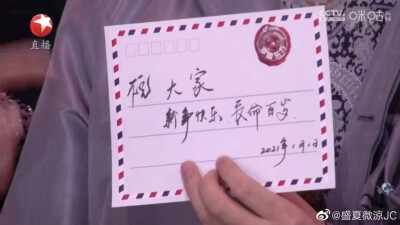 直播
CCTV 咪咕
祝 大家
新年快乐 长命百岁
2021年1月1日
@盛夏微涼JC